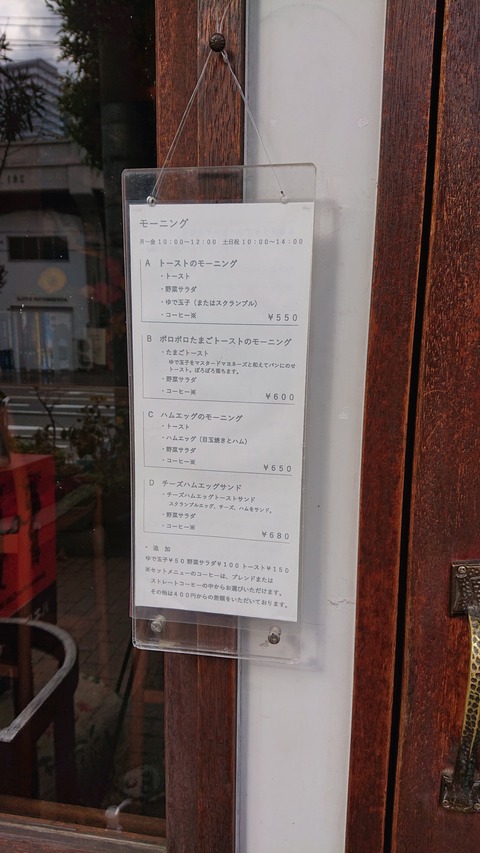 モーニング
月ー金10:00～12:00 土日祝10:00～14:00
A トーストのモーニング
・トースト
・野菜サラダ
・ゆで玉子（またはスクランブル）
・コーヒー※
¥550
B ポロポロたまごトーストのモーニング
・たまごトースト
ゆで玉子をマスタードマヨネーズと和えてパンにのせ
トースト。ぽろぽろ落ちます。
・野菜サラダ
・コーヒー※
¥600
C ハムエッグのモーニング
・トースト
・ハムエッグ（目玉焼きとハム）
・野菜サラダ
・コーヒー※
¥650
D チーズハムエッグサンド
・チーズハムエッグトーストサンド
スクランブルエッグ、チーズ、ハムをサンド。
・野菜サラダ
・コーヒー※
¥680
・ 追 加
ゆで玉子¥50 野菜サラダ¥100 トースト¥150
※セットメニューのコーヒーは、ブレンドまたは
ストレートコーヒーの中からお選びいただけます。
その他は400円からの差額をいただいております。